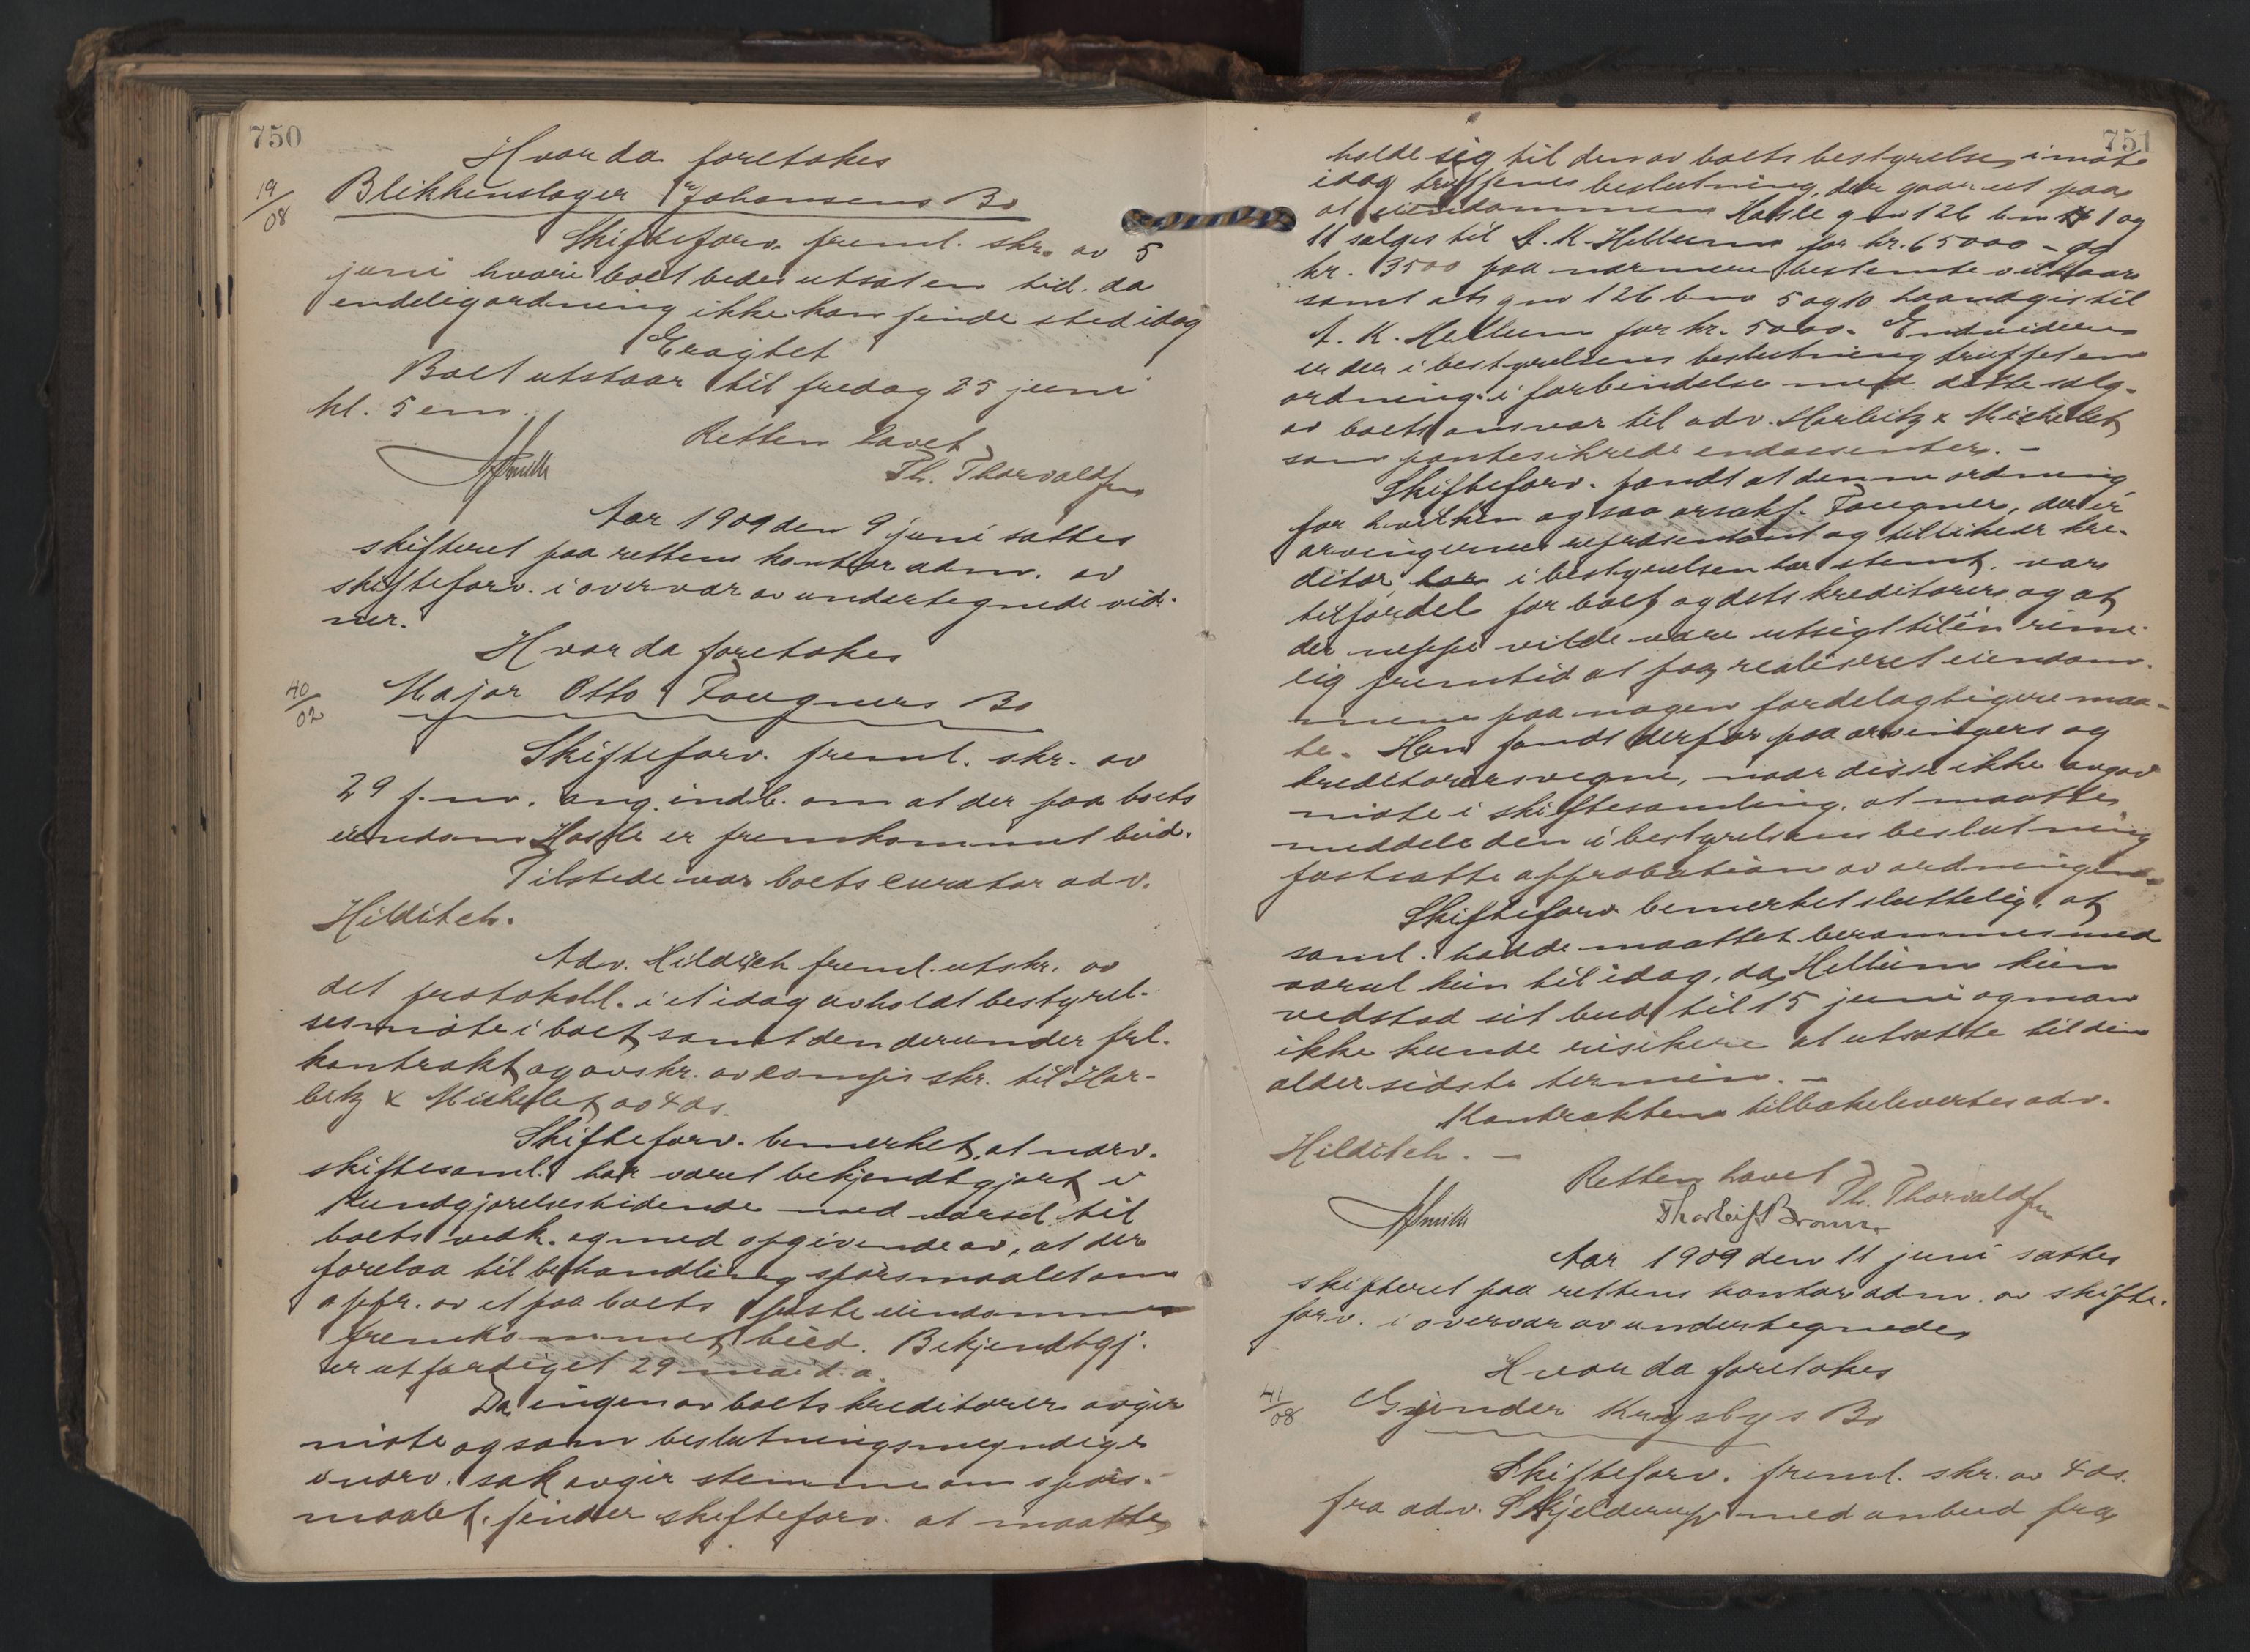 750
Hvorda foretokes
19/08 Blikkenslager Johansens Bo
Skifteforv. freml. skr. av 5
juni hvori boet bedes utsat en tid. da
endelig ordning ikke kan finde sted idag
Eragtet
Boet utstaar til fredag 25 juni
kl. 5 em.
Retten hævet
ASmith Th. Thorvaldsen
Aar 1909 den 9 juni sattes
skifteret paa rettens kontor adm. av
skifteforv. i overvær av undertegnede vid-
ner.
Hvor da foretokes
40/02 Major Otto Fougners Bo
Skifteforv. freml. skr. av
29 f.m. ang. indb. om at der paa boets
eiendom Hasle er fremkommet bud.
Tilstede var boets curator adv.
Hilditch.
Adv. Hilditch freml. utskr. av
det protokoll. i et idag avholdt bestyrel-
sesmøte i boet, samt den derunder frl.
kontrakt og avskr. av skr. til Har-
bitz & Michelet av 4 ds.
Skifteforv. bemerket, at nærv.
skiftesaml. har været bekjendtgjort i
Kundgjørelsestidende med varsel til
boets vedk. og med opgivende av, at der
forelaa til behandling spørsmaalet om
appr. av et paa boets faste eiendommer
fremkommet bud. Bekjendtgj.
er utfærdiget 29 mai d.a.
Da ingen av boets kreditorer avgir
møte og som beslutningsmyndige
i nærv. sak avgir stemme om spørs-
maalet, finder skifteforv. at maatte
751
holde sig til den av boets bestyrelse i møte
idag trufne beslutning, der gaar ut paa
at eiendommen Hasle gno 126 bno 1 og
11 sælges til A. K. Hellum for kr. 65000 - og
kr. 3500 paa nærmere bestemte vilkaar
samt at gno 126 bno 5 og 10 haandgis til
A. K. Hellum for kr. 5000. Endvidere
er der i bestyrelsens beslutning truffet en
ordning i forbindelse med dette salg
av boets ansvar til adv. Harbitz & Michelet
som pantesikrede endossenter. -
Skifteforv. fandt at denne ordning
for hvilken ogsaa orsakf. Fougner, der er
arvingernes repræsentant og tillike er kre-
ditor, i bestyrelsen har stemt, var
til fordel for boet og dets kreditorer og at
der neppe vilde være utsigt til in rime-
lig fremtid at faa realiseret eiendom-
mene paa nogen fordelagtigere maa-
te. Han fandt derfor paa arvingers og
kreditorers vegne, naar disse ikke avgav
møte i skiftesamling, at maatte
meddele den i bestyrelsens beslutning
fastsatte approbation av ordningen.
Skifteforv. bemerket sluttelig, at
saml. hadde maattet berammes med
varsel kun til idag, da Hellum kun
vedstod sit bud til 15 juni og man
ikke kunde risikere at utsætte til den
aldersidste termin. -
Kontrakten tilbakelevertes adv.
Hilditch. -
Retten hævet
ASmith Thorleif Bronn Th. Thorvaldsen
Aar 1909 den 11 juni sattes
skifteret paa rettens kontor adm. av skifte-
forv. i overvær av undertegnede
Hvor da foretokes
41/08 Gjønder Krysbys Bo
Skifteforv. freml. skr. av 4 ds.
fra adv. Skjelderup med anbud fra